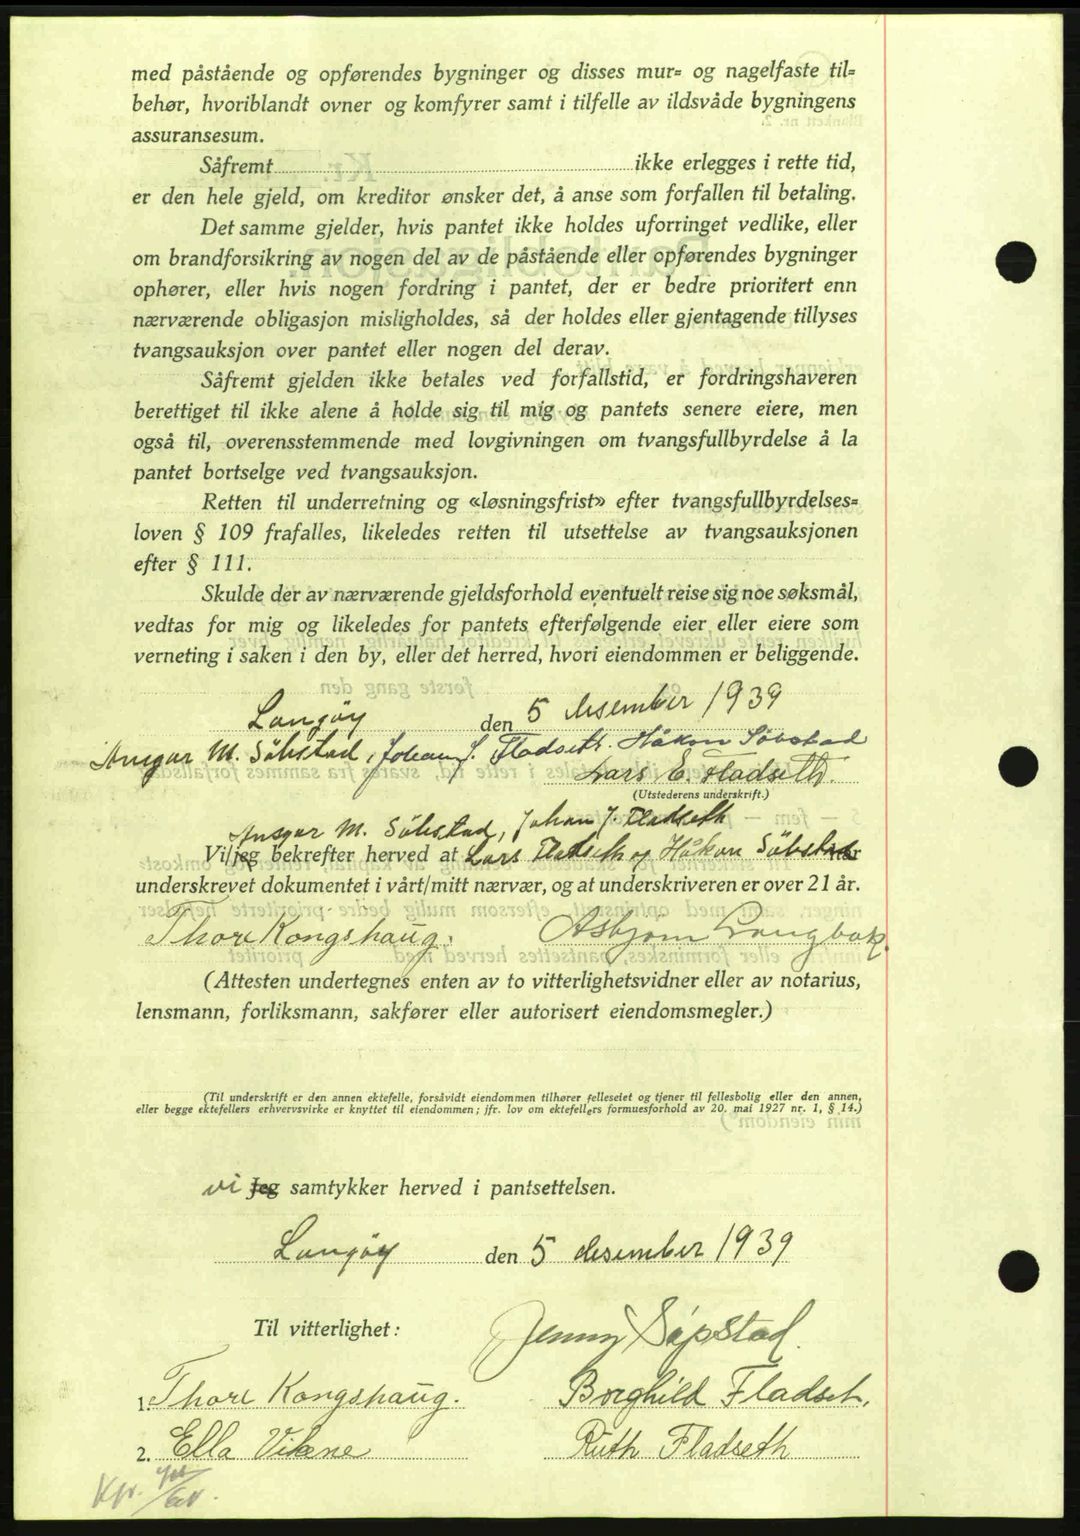 med påstående og opførendes bygninger og disses mur= og nagelfaste til=
behør, hvoriblandt ovner og komfyrer samt i tilfelle av ildsvåde bygningens
assuransesum.
Såfremt ikke erlegges i rette tid,
er den hele gjeld, om kreditor ønsker det, å anse som forfallen til betaling.
Det samme gjelder, hvis pantet ikke holdes uforringet vedlike, eller
om brandforsikring av nogen del av de påstående eller opførendes bygninger
ophører, eller hvis nogen fordring i pantet, der er bedre prioritert enn
nærværende obligasjon misligholdes, så der holdes eller gjentagende tillyses
tvangsauksjon over pantet eller nogen del derav.
Såfremt gjelden ikke betales ved forfallstid, er fordringshaveren
berettiget til ikke alene å holde sig til mig og pantets senere eiere, men
også til, overensstemmende med lovgivningen om tvangsfullbyrdelse å la
pantet bortselge ved tvangsauksjon.
Retten til underretning og «løsningsfrist» efter tvangsfullbyrdelses=
loven § 109 frafalles, likeledes retten til utsettelse av tvangsauksjonen
efter § 111.
Skulde der av nærværende gjeldsforhold eventuelt reise sig noe søksmål,
vedtas for mig og likeledes for pantets efterfølgende eier eller eiere som
verneting i saken i den by, eller det herred, hvori eiendommen er beliggende.
Langøy den 5 desember 1939
Ansgar M. Söbstad, Johan J. Fladseth. Håkon Söbstad
Lars E. Fladseth.
(Utstederens underskrift.)
Ansgar M. Söbstad, Johan J. Fladseth
Vi/jeg bekrefter herved at Lars Fladseth og Håkon Söbstad har
underskrevet dokumentet i vårt/mitt nærvær, og at underskriveren er over 21 år.
Thore Kongshaug. Asbjörn Langbak.
(Attesten undertegnes enten av to vitterlighetsvidner eller av notarius,
lensmann, forliksmann, sakfører eller autorisert eiendomsmegler.)
(Til underskrift er den annen ektefelle, forsåvidt eiendommen tilhører felleseiet og tjener til fellesbolig eller den annen,
eller begge ektefellers erhvervsvirke er knyttet til eiendommen; jfr. lov om ektefellers formuesforhold av 20. mai 1927 nr. 1, § 14.)
vi Jeg samtykker herved i pantsettelsen.
Langöy den 5 desember 1939
Til vitterlighet: Jenny Söpstad.
1. Thore Kongshaug. Borghild Fladset.
2. Ella Vikene Ruth Fladseth
Kfr.